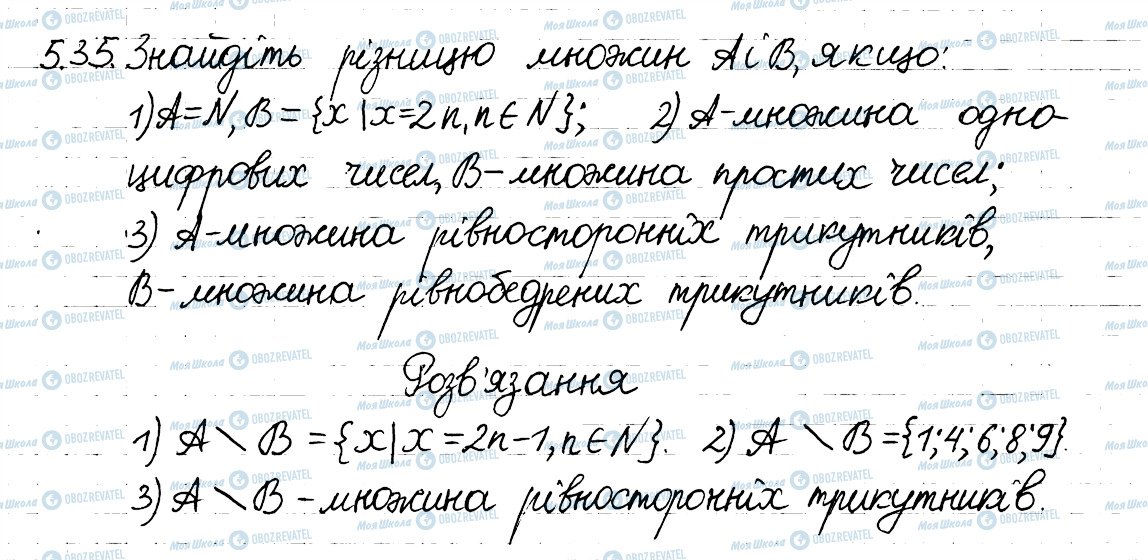 5.35. Знайдіть різницю множин A і B, якщо:
1) A = N, B = {x | x = 2n, n ∈ N}; 2) A - множина одно-
цифрових чисел, B - множина простих чисел;
3) A - множина рівносторонніх трикутників,
B - множина рівнобедрених трикутників.
Розв'язання
1) A \ B = {x | x = 2n - 1, n ∈ N}. 2) A \ B = {1; 4; 6; 8; 9}.
3) A \ B - множина рівносторонніх трикутників.
Моя Школа OBOZREVATEL